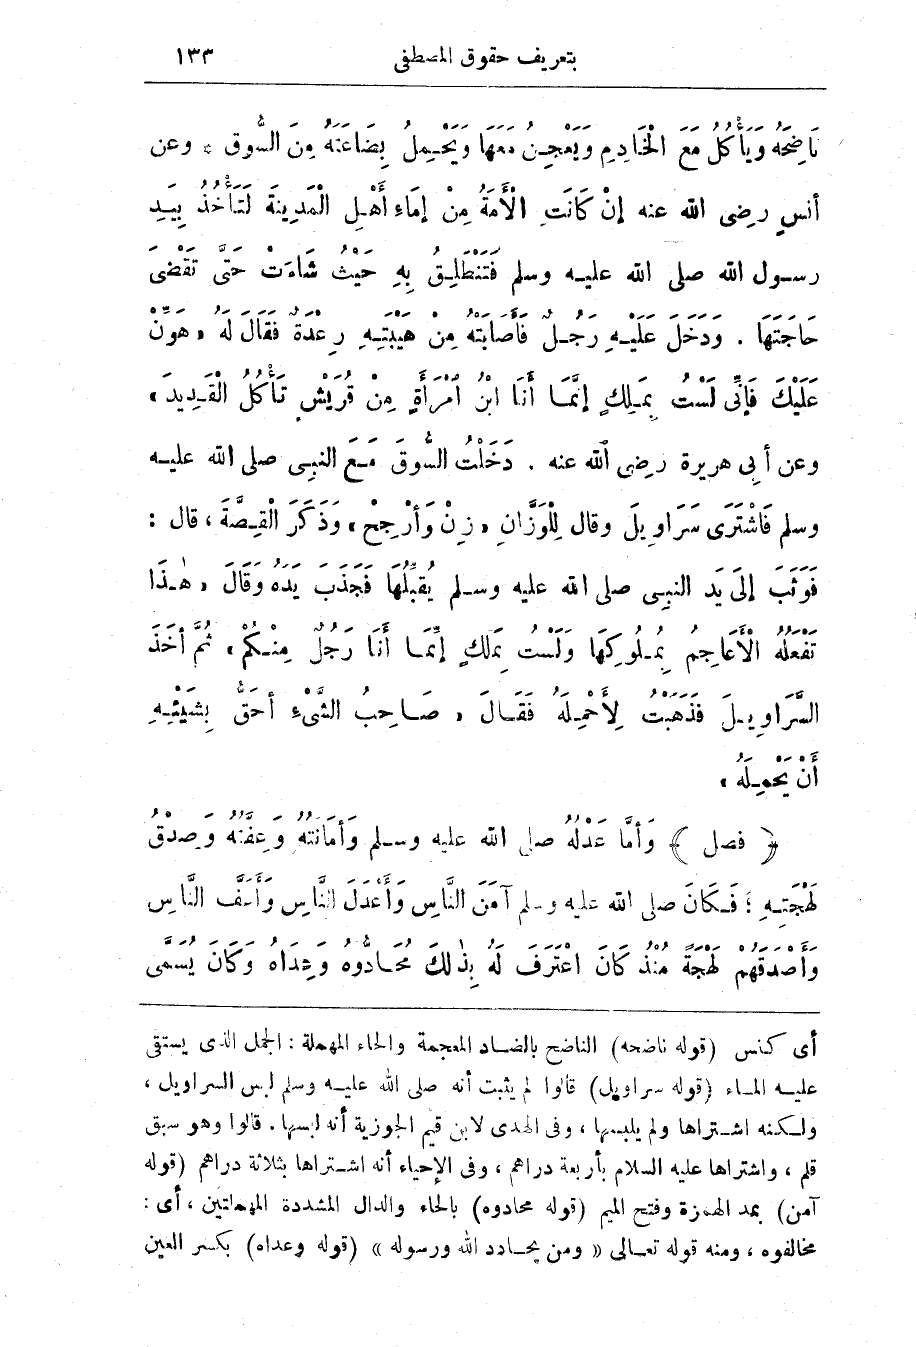 بتعريف حقوق المصطفى ١٣٣
نَاضِحَهُ وَيَأْكُلُ مَعَ الْخَادِمِ وَيَعْجِنُ مَعَهَا وَيَحْمِلُ بِضَاعَتَهُ مِنَ السُّوقِ * وعن
أنس رضى الله عنه إنْ كَانَتِ الْأَمَةُ مِنْ إمَاءِ أَهْلِ الْمَدِينَةِ لَتَأْخُذُ بِيَدِ
رسول الله صلى الله عليه وسلم فَتَنْطَلِقُ بِهِ حَيْثُ شَاءَتْ حَتَّى تَقْضَىَ
حَاجَتَهَا . وَدَخَلَ عَلَيْهِ رَجُلٌ فَأَصَابَتْهُ مِنْ هَيْبَتِهِ رِعْدَةٌ فَقَالَ لَهُ « هَوِّنْ
عَلَيْكَ فَإِنِّى لَسْتُ بِمَلِكٍ إنَّمَا أَنَا ابْنُ امْرَأَةٍ مِنْ قُرَيْشٍ تَأْكُلُ الْقَدِيدَ »
وعن أبى هريرة رضى الله عنه . دَخَلْتُ السُّوقَ مَعَ النبى صلى الله عليه
وسلم فَاشْتَرَى سَرَاوِيلَ وقال لِلْوَزَّانِ « زِنْ وَأَرْجِحْ » وَذَكَرَ الْقِصَّةَ ، قال :
فَوَثَبَ إلَى يَدِ النبى صلى الله عليه وسلم يُقَبِّلُهَا فَجَذَبَ يَدَهُ وَقَالَ « هٰذَا
تَفْعَلُهُ الْأَعَاجِمُ بِمُلُوكِهَا وَلَسْتُ بِمَلِكٍ إنَّمَا أَنَا رَجُلٌ مِنْكُمْ » ثُمَّ أَخَذَ
السَّرَاوِيلَ فَذَهَبْتُ لِأَحْمِلَهُ فَقَالَ « صَاحِبُ الشَّىْءِ أَحَقُّ بِشَيْئِهِ
أَنْ يَحْمِلَهُ »
﴿ فصل ﴾ وَأَمَّا عَدْلُهُ صلى الله عليه وسلم وَأَمَانَتُهُ وَعِفَّتُهُ وَصِدْقُ
لَهْجَتِهِ ؛ فَكَانَ صلى الله عليه وسلم آمَنَ النَّاسِ وَأَعْدَلَ النَّاسِ وَأَعَفَّ النَّاسِ
وَأَصْدَقَهُمْ لَهْجَةً مُنْذُ كَانَ اعْتَرَفَ لَهُ بِذٰلِكَ مُحَادُّوهُ وَعِدَاهُ وَكَانَ يُسَمَّى
أى كنس (قوله ناضحه) الناضح بالضاد المعجمة والحاء المهملة : الجمل الذى يستقى
عليه الماء (قوله سراويل) قالوا لم يثبت أنه صلى الله عليه وسلم لبس السراويل ،
ولكنه اشتراها ولم يلبسها ، وفى الهدى لابن قيم الجوزية أنه لبسها . قالوا وهو سبق
قلم ، واشتراها عليه السلام بأربعة دراهم ، وفى الإحياء أنه اشتراها بثلاثة دراهم (قوله
آمن) بمد الهمزة وفتح الميم (قوله محادوه) بالحاء والدال المشددة المهملتين ، أى :
مخالفوه ، ومنه قوله تعالى « ومن يحادد الله ورسوله » (قوله وعداه) بكسر العين